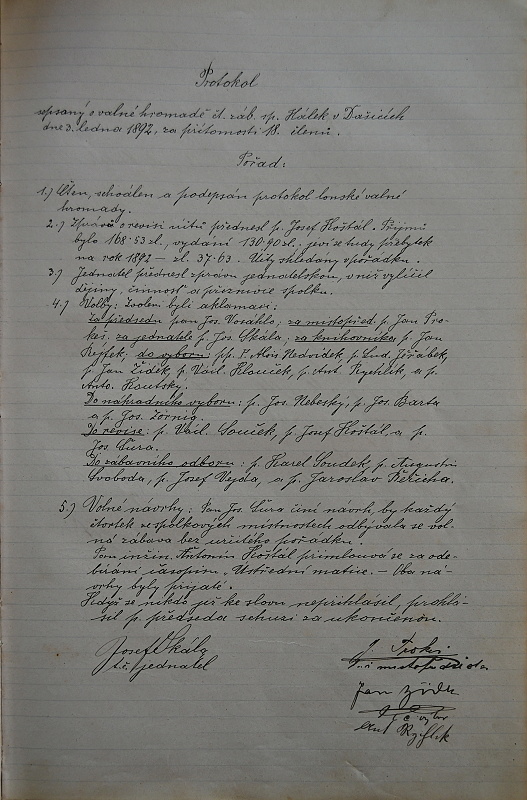 Protokol
sepsaný o valné hromadě čt. záb. sp. Hálek v Dašicích
dne 3. ledna 1892, za přítomosti 18. členů.
Pořad:
1.) Čten, schválen a podepsán protokol lonské valné
hromady.
2.) Zprávu o revisi účtů přednesl p. Josef Hoštál. Příjmů
bylo 168·53 zl., vydání 130·90 zl. jeví se tudy přebytek
na rok 1892 — zl. 37·63. Účty shledány v pořádku.
3.) Jednatel přednesl zprávu jednatelskou, v níž vylíčil
dějiny, činnosť a příznivce spolku.
4.) Volby: Zvoleni byli aklamací:
Za předsedu pan Jos. Vosáhlo, za místopřed. p. Jan Pro-
keš, za jednatele p. Jos. Skála; za knihovníka p. Jan
Rejfek; do výboru: pp. P. Alois Nedvídek, p. Lud. Jeřábek,
p. Jan Žídek, p. Václ. Hlouček, p. Ant. Rychlík, a p.
Anto. Routský.
Do náhradního výboru: p. Jos. Nebeský, p. Jos. Barta
a p. Jos. Zörnig.
Do revise: p. Václ. Souček, p. Josef Hoštál, a p.
Jos. Čura.
Do zábavního odboru: p. Karel Soudek, p. Augustin
Svoboda, p. Josef Vejda, a p. Jaroslav Řeřicha.
5.) Volné návrhy: Pan Jos. Čura činí návrh, by každý
čtvrtek ve spolkových místnostech odbývala se vol-
ná zábava bez určitého pořádku.
Pan inžin. Antonín Hoštál přimlouvá se za ode-
bírání časopisu, Ústřední matice. — Oba ná-
vrhy byly přijaté.
Když se nikdo již ke slovu nepřihlásil, prohlá-
sil p. předseda schůzi za ukončenou.
Josef Skála
t. č. jednatel
J. Prokeš
t. č. místopředseda
Jan Žídek
t. č. výbor
Ant Rychlík